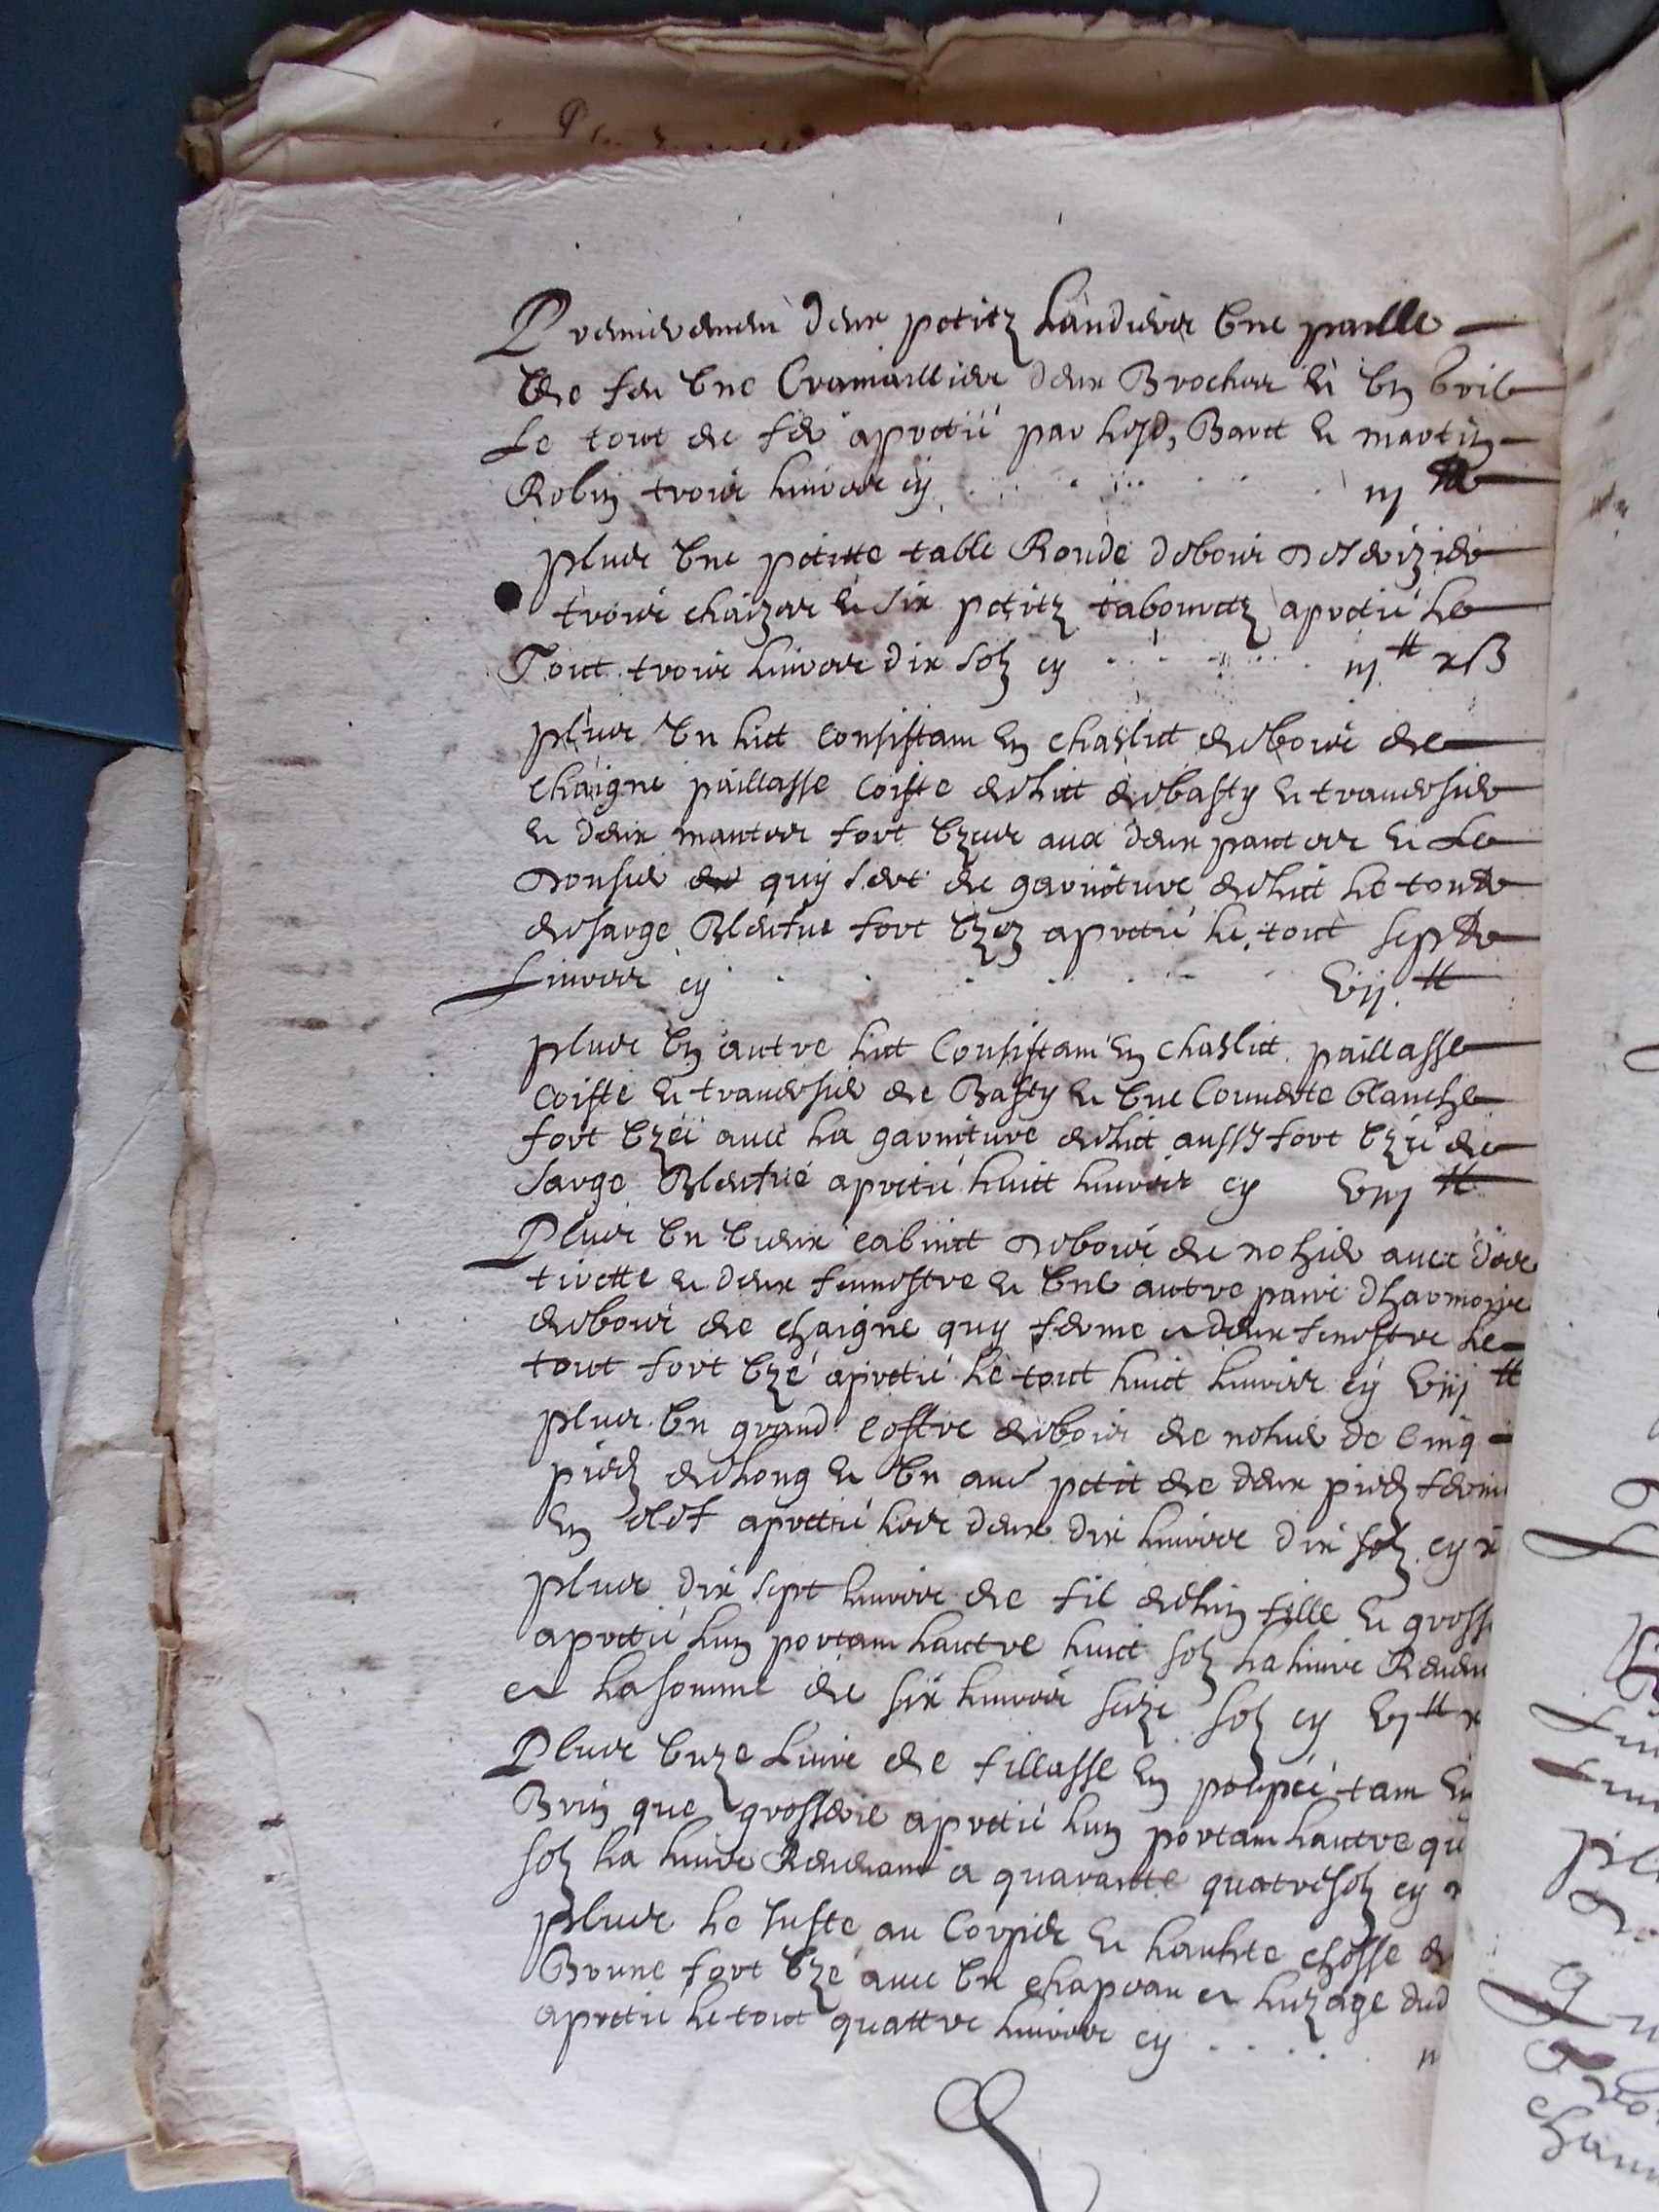 Premierement deux petitz landiers une paelle
de feu une Cramaillier deux Broches et un Gril
Le tout de fer apretié par lesd, Baret et martin
Robin trois livres cy iij ₶
plus une petitte table Ronde de bois de serizier
trois chaizes et six petitz tabouretz apretié le
Tout trois livres dix solz cy iij ₶ x ß
plus un lict consistant en chaslict de bois de
chaigne paillasse coiste de lict de basty et traversier
et deux mantes fort uzees avec deux pantes et Le
dosier quy sert de garniture de lict le tout
de sarge Bleufve fort uzez apretié le tout sept
Livres cy vij ₶
plus un autre lict Consistant en chaslict paillasse
Coiste et traversier de Basty et une Couverte blanche
fort uzéé avec la garniture de lict aussy fort uzéé de
sarge Bleufve apretié huict livres cy viij ₶
Plus un vieux cabinet de bois de nohier avec des
tirette et deux fennestre et une autre paire dharmoire
de bois de chaigne quy ferme a deux fenestre le
tout fort uzé apretié le tout huict livres cy viij ₶
plus un grand coffre de bois de nohier de cinq
piedz de long et un autre petit de deux piedz ferm
en clef apretié les deux dix livres dix solz cy x
plus dix sept livres de fil de lin fille et gross
apretié lun portant lautre huict solz la livre Reven
a la somme de six livres seize solz cy vj ₶ x
Plus unze Livre de fillasse en poupéé tant en
Brin que grosserie apretié lun portant lautre qu
solz la livre Revenant a quarante quatre solz cy
plus le Juste au Corps et haulte chosse de
Brune fort uzé avec un chapeau a luzage dud
apretié le tout quattre livres cy